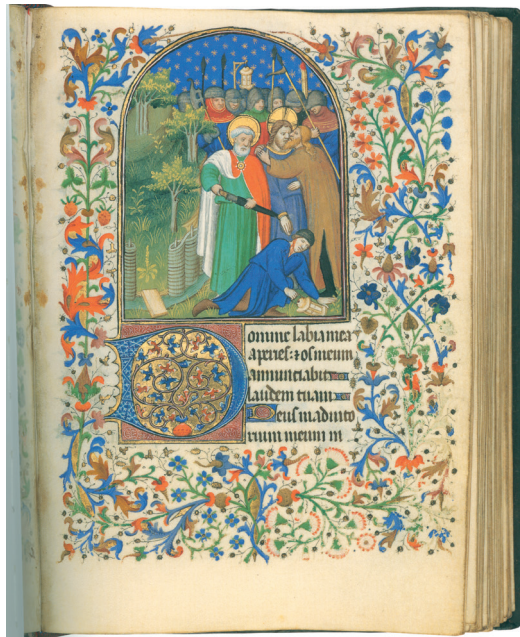 Domine labia mea
aperies: ⁊ os meum
annunciabit
laudem tuam
Deus in adiuto
rium meum in